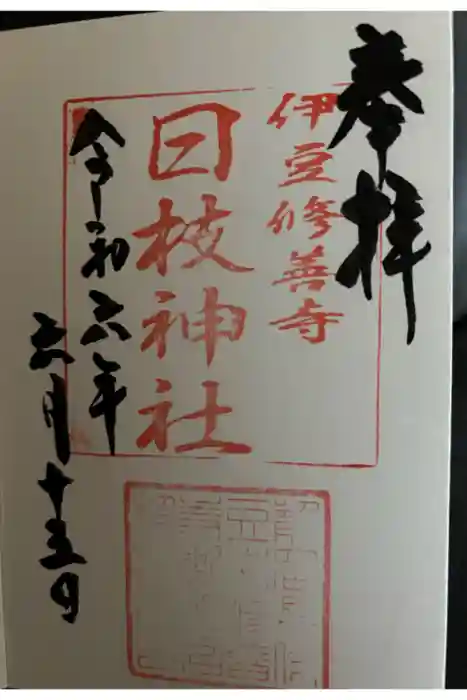 奉拝
伊豆修善寺
日枝神社
令和六年
六月十五日